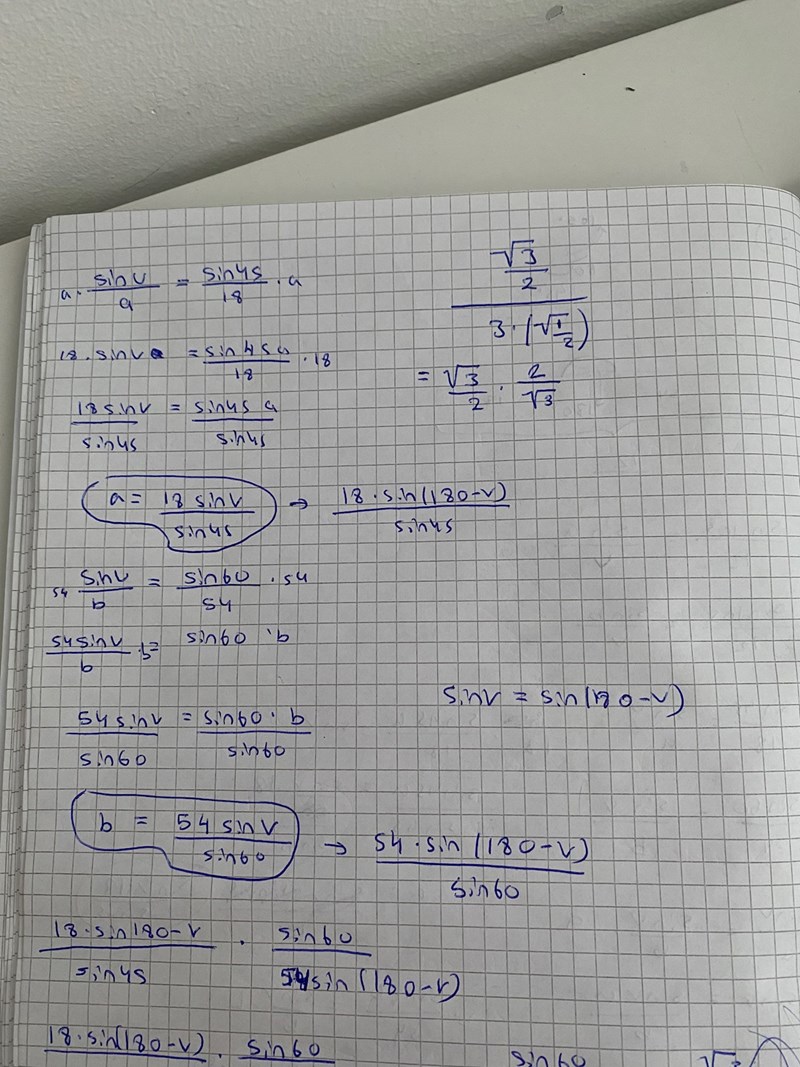 a · sinv/a = sin45/18 · a
18 · sinv = sin45a/18 · 18
18sinv/sin45 = sin45 a/sin45
a = 18 sinv/sin45 → 18 · sin(180-v)/sin45
54 sinv/b = sin60/54 · 54
54sinv/b · b = sin60 · b
54sinv/sin60 = sin60 · b/sin60
b = 54 sinv/sin60 → 54 · sin(180-v)/sin60
18 · sin180-v/sin45 · sin60/54sin(180-v)
18 · sin(180-v) · sin60
√3/2
3 · (√1/2)
= √3/2 · 2/√3
sinv = sin(180-v)
sin60